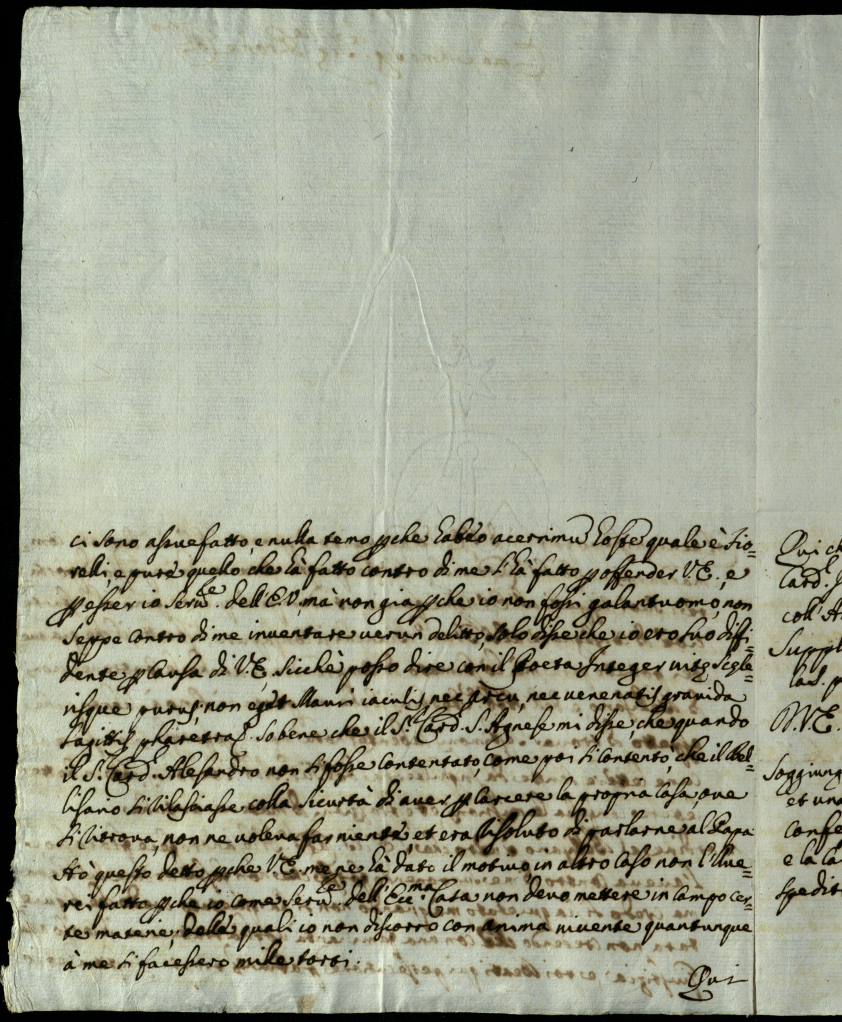 ci sono assuefatto, e nulla temo pche habbo acerrimu hoste quale è Fio=
relli, e pure quello che hà fatto contro di me l'hà fatto p offender V.E., e
p esser io Serv.e dell'E.V, mà non già pche io non fossi galantuomo, non
seppe contro di me inventare verun delitto, solo disse che io ero suo diffi=
dente p causa di V.E, sicchè posso dire con il Poeta Integer vitę Scele=
risque purus, non eget Mauri iaculis, nec arcu, nec venenatis gravida
sagittis pharetra. So bene che il S.r Card. S. Agnese mi disse, che quando
il S.r Card. Alesandro non si fosse contentato, come poi si contentò, che il Bel=
lisario si rilasciasse colla sicurtà di aver p carcere la propria Casa, ove
si ritrova, non ne voleva far niente, et era risoluto di parlarne al Papa
Hò questo detto pche V.E. me ne hà dato il motivo, in altro caso non l'have=
rei fatto pche io come Serv.e dell'Ecc.ma Casa non devo mettere in campo cer=
te materie, delle quali io non discorro con anima vivente quantunque
à me si facessero mille torti.
Qui
Qui ch
Card.
coll'A
Suppl
la S. p
V.E.
Soggiung
et una
confe
e la Ca
spedit